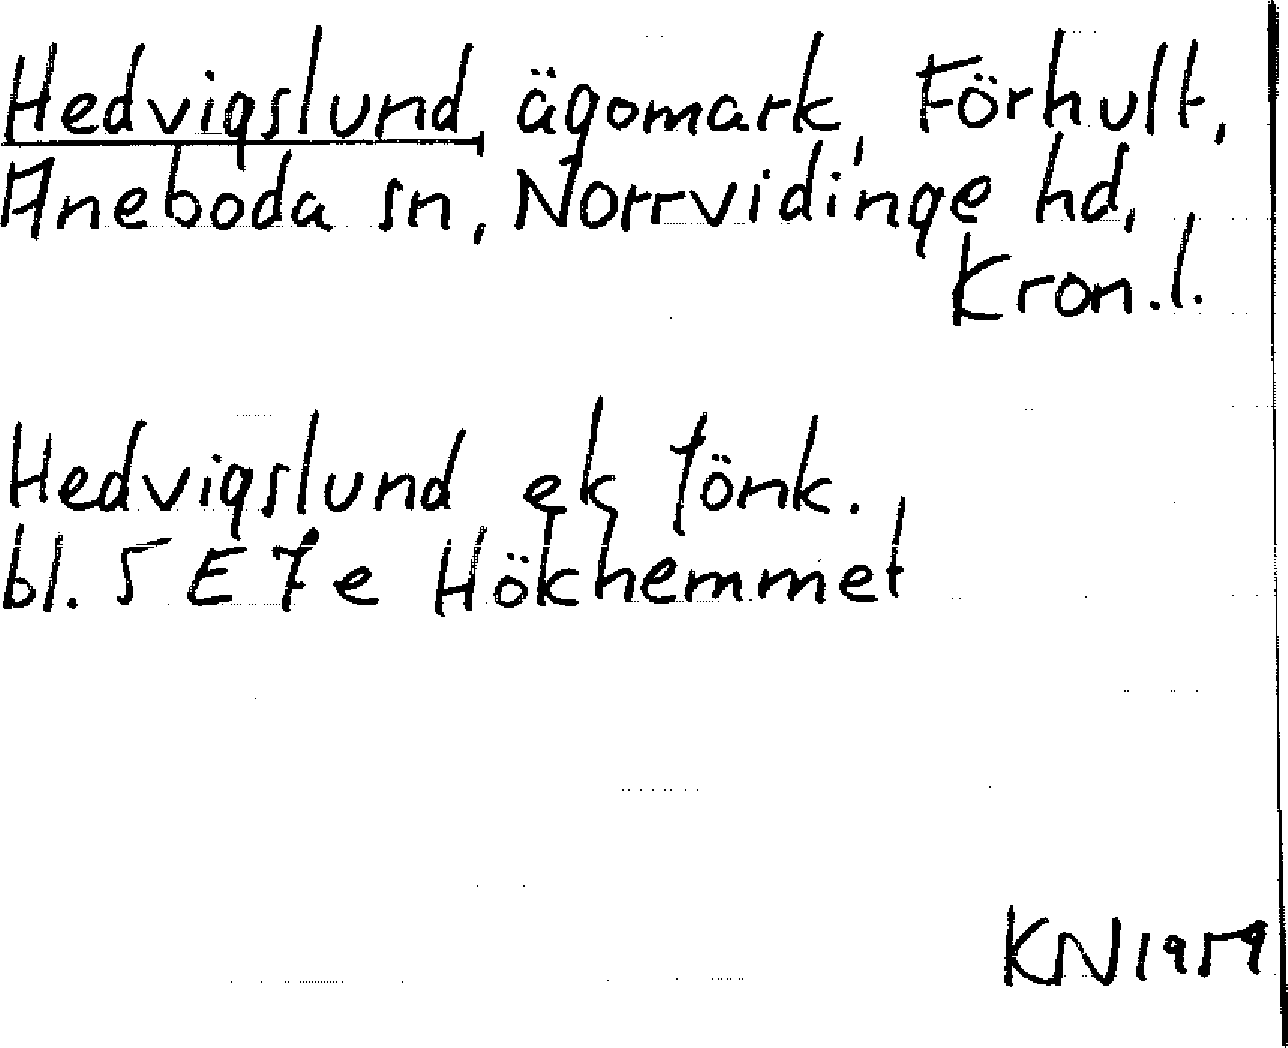 Hedvigslund, ägomark, Förhult,
Aneboda sn, Norrvidinge hd,
Kron.l.
Hedvigslund ek Jönk.
bl. 5 E 7 e Hökhemmet
KN 1959